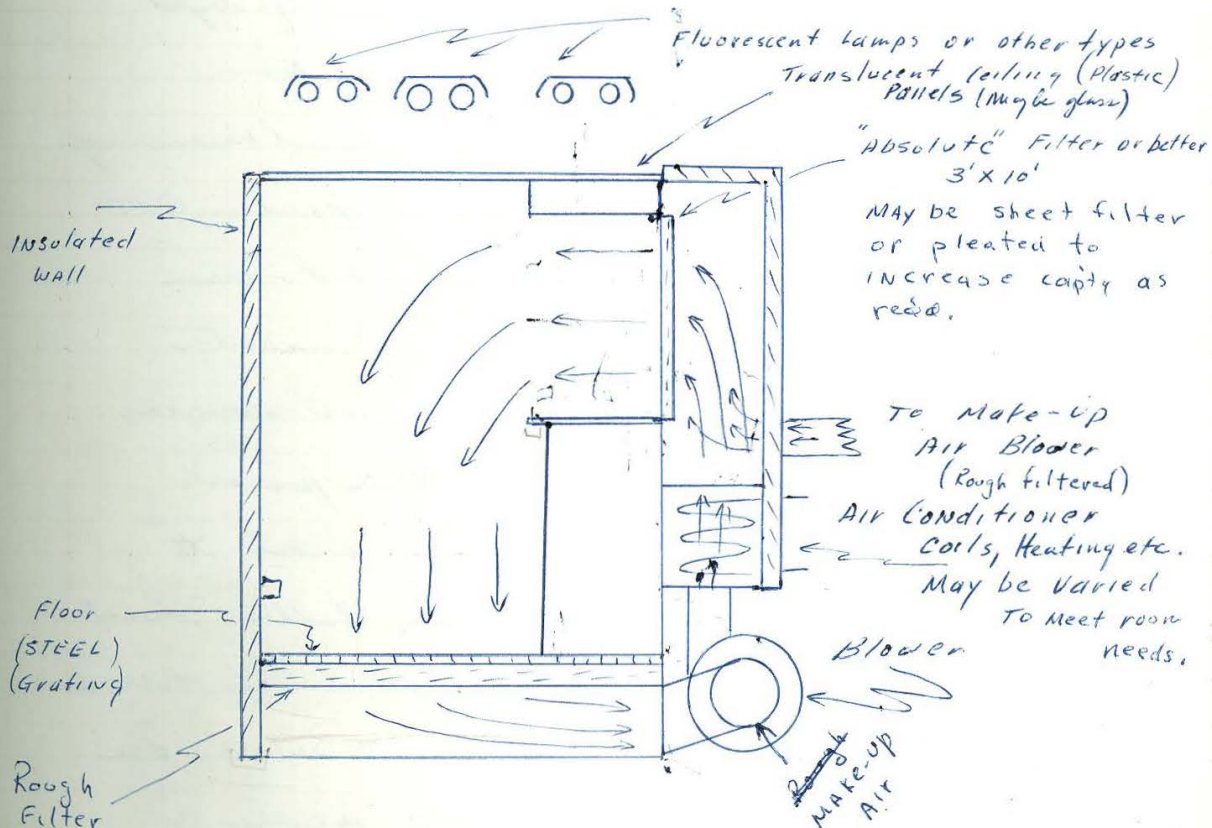 Fluorescent Lamps or other types
Translucent Ceiling (Plastic)
Panels (Maybe glass)
"Absolute" Filter or better
3' X 10'
MAY be sheet filter
or pleated to
INcrease capty as
reqd.
INsulated
WALL
To Make-up
Air Blower
(Rough filtered)
Air Conditioner
Coils, Heating etc.
May be varied
To Meet room
needs.
Floor
(STEEL)
(Grating)
Blower
Rough
MAKE-UP
Air
Rough
Filter